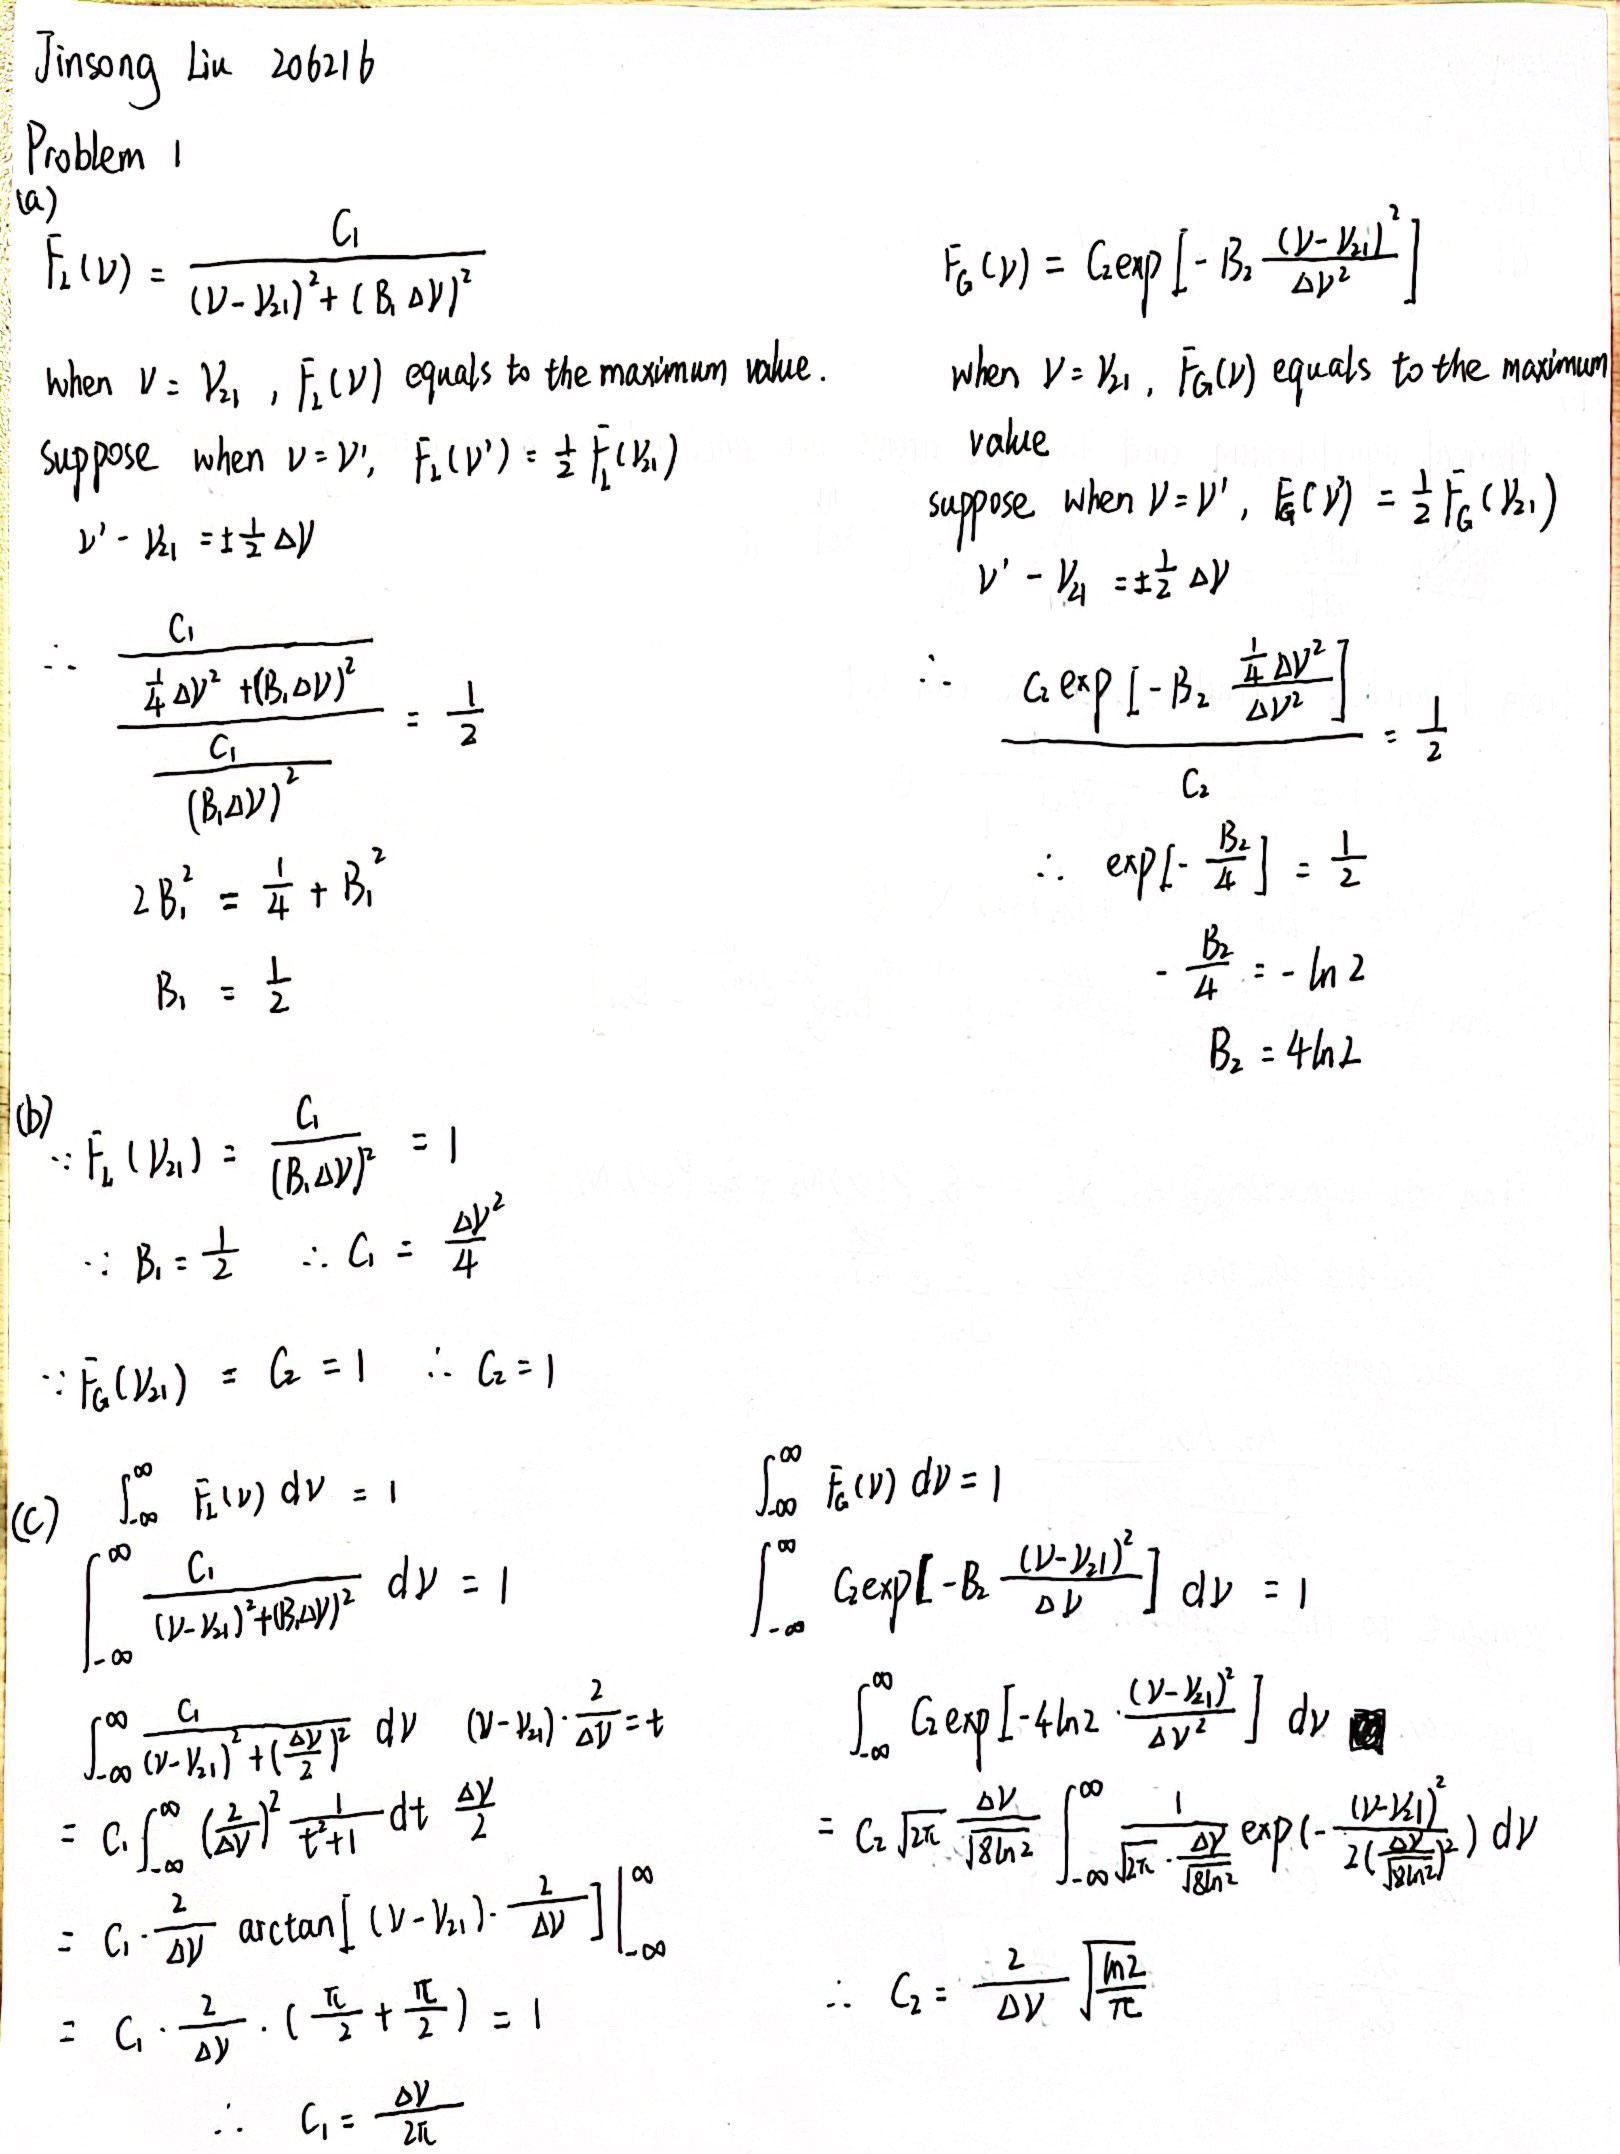 Jinsong Liu 206216
Problem 1
(a)
F_L(ν) = C₁ / ((ν-ν₂₁)² + (B₁Δν)²)
when ν = ν₂₁, F_L(ν) equals to the maximum value.
suppose when ν=ν', F_L(ν') = 1/2 F_L(ν₂₁)
ν' - ν₂₁ = ± 1/2 Δν
∴ (C₁ / (1/4 Δν² + (B₁Δν)²)) / (C₁ / (B₁Δν)²) = 1/2
2B₁² = 1/4 + B₁²
B₁ = 1/2
F_G(ν) = C₂exp[-B₂ (ν-ν₂₁)² / Δν²]
when ν=ν₂₁, F_G(ν) equals to the maximum
value
suppose when ν=ν', F_G(ν') = 1/2 F_G(ν₂₁)
ν' - ν₂₁ = ± 1/2 Δν
∴ C₂ exp[-B₂ (1/4 Δν²) / Δν²] / C₂ = 1/2
∴ exp[- B₂/4] = 1/2
- B₂/4 = - ln 2
B₂ = 4ln2
(b)
∵ F_L(ν₂₁) = C₁ / (B₁Δν)² = 1
∵ B₁ = 1/2 ∴ C₁ = Δν²/4
∵ F_G(ν₂₁) = C₂ = 1 ∴ C₂ = 1
(c) ∫_{-∞}^{∞} F_L(ν) dν = 1
∫_{-∞}^{∞} C₁ / ((ν-ν₂₁)² + (B₁Δν)²) dν = 1
∫_{-∞}^{∞} C₁ / ((ν-ν₂₁)² + (Δν/2)²) dν (ν-ν₂₁)·2/Δν = t
= C₁ ∫_{-∞}^{∞} (2/Δν)² 1/(t²+1) dt Δν/2
= C₁ · 2/Δν arctan[(ν-ν₂₁)· 2/Δν] |_{-∞}^{∞}
= C₁ · 2/Δν · (π/2 + π/2) = 1
∴ C₁ = Δν/2π
∫_{-∞}^{∞} F_G(ν) dν = 1
∫_{-∞}^{∞} C₂exp[-B₂ (ν-ν₂₁)² / Δν] dν = 1
∫_{-∞}^{∞} C₂ exp[-4ln2 · (ν-ν₂₁)² / Δν²] dν
= C₂ √2π Δν/√8ln2 ∫_{-∞}^{∞} 1 / (√2π · Δν/√8ln2) exp(- (ν-ν₂₁)² / 2(Δν/√8ln2)²) dν
∴ C₂ = 2/Δν √(ln2/π)